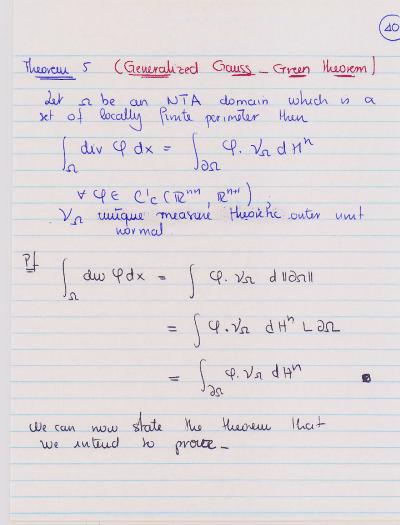 40
Theorem 5 (Generalized Gauss_Green theorem)
Let Ω be an NTA domain which is a
set of locally finite perimeter then
∫_Ω div φ dx = ∫_∂Ω φ. ν_Ω dH^n
∀ φ ∈ C^1_c (ℝ^{n+1}, ℝ^{n+1}) ;
ν_Ω unique measure theoretic outer unit
normal.
Pf ∫_Ω div φ dx = ∫ φ. ν_Ω d‖∂Ω‖
= ∫ φ. ν_Ω dH^n ∟ ∂Ω
= ∫_∂Ω φ. ν_Ω dH^n ■
We can now state the theorem that
we intend to prove_